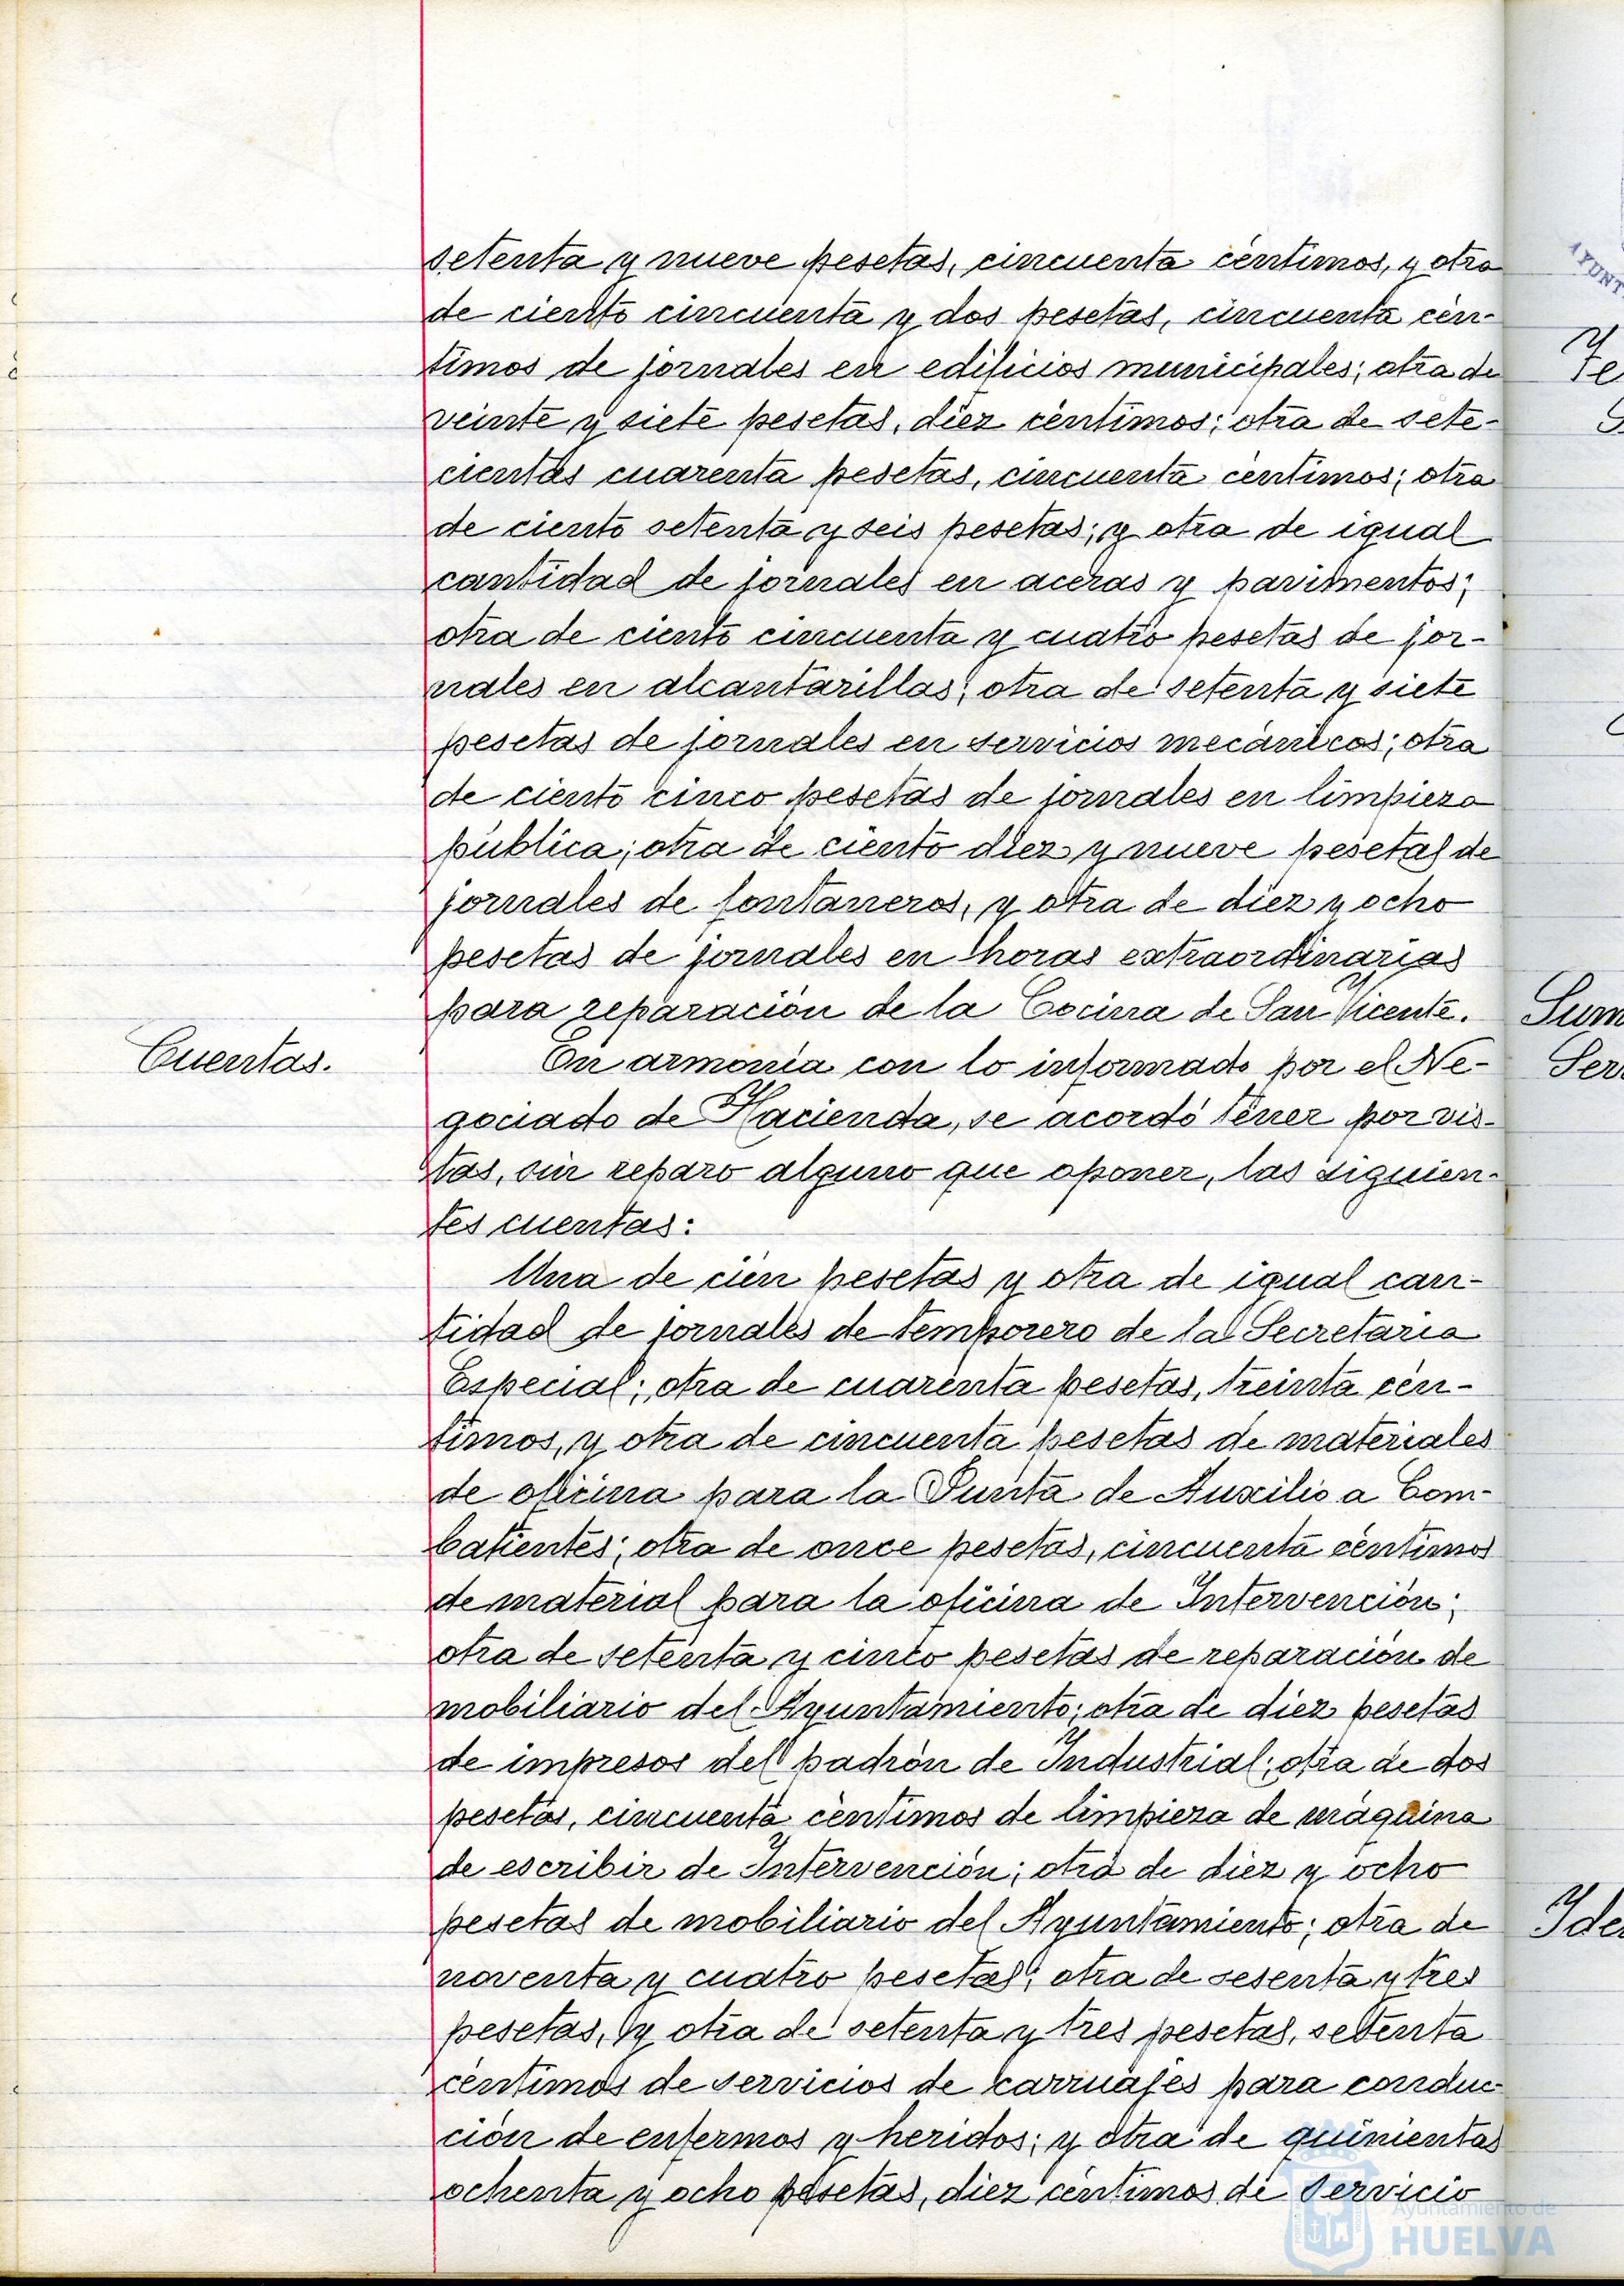 setenta y nueve pesetas, cincuenta céntimos, y otra
de ciento cincuenta y dos pesetas, cincuenta cén-
timos de jornales en edificios municipales; otra de
veinte y siete pesetas, diez céntimos; otra de sete-
cientas cuarenta pesetas, cincuenta céntimos; otra
de ciento setenta y seis pesetas; y otra de igual
cantidad de jornales en aceras y pavimentos;
otra de ciento cincuenta y cuatro pesetas de jor-
nales en alcantarillas; otra de setenta y siete
pesetas de jornales en servicios mecánicos; otra
de ciento cinco pesetas de jornales en limpieza
pública; otra de ciento diez y nueve pesetas de
jornales de fontaneros, y otra de diez y ocho
pesetas de jornales en horas extraordinarias
para reparación de la Cocina de San Vicente.
Cuentas.
En armonía con lo informado por el Ne-
gociado de Hacienda, se acordó tener por vis-
tas, sin reparo alguno que oponer, las siguien-
tes cuentas:
Una de cien pesetas y otra de igual can-
tidad de jornales de temporero de la Secretaria
Especial; otra de cuarenta pesetas, treinta cén-
timos, y otra de cincuenta pesetas de materiales
de oficina para la Junta de Auxilio a Com-
batientes; otra de once pesetas, cincuenta céntimos
de material para la oficina de Intervención;
otra de setenta y cinco pesetas de reparación de
mobiliario del Ayuntamiento; otra de diez pesetas
de impresos del padrón de Industrial; otra de dos
pesetas, cincuenta céntimos de limpieza de máquina
de escribir de Intervención; otra de diez y ocho
pesetas de mobiliario del Ayuntamiento; otra de
noventa y cuatro pesetas; otra de sesenta y tres
pesetas, y otra de setenta y tres pesetas, setenta
céntimos de servicios de carruajes para conduc-
ción de enfermos y heridos; y otra de quinientas
ochenta y ocho pesetas, diez céntimos de servicio
Ayuntamiento de
HUELVA